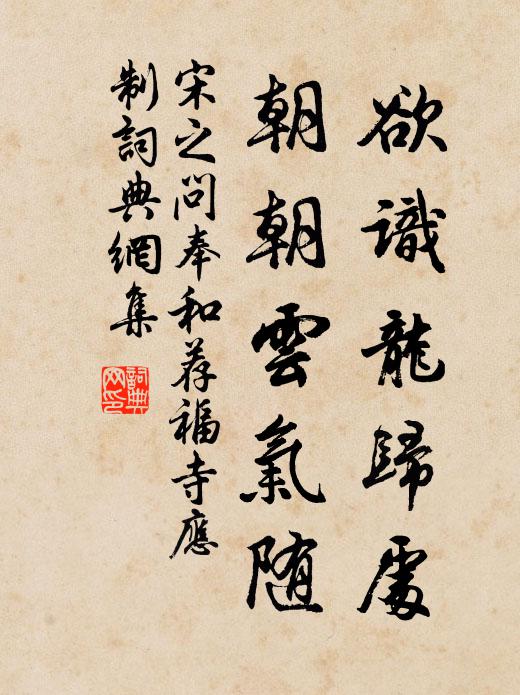 欲識龍歸處
朝朝雲氣随
宋之問奉和荐福寺應
制詞典網集
詞典
网印